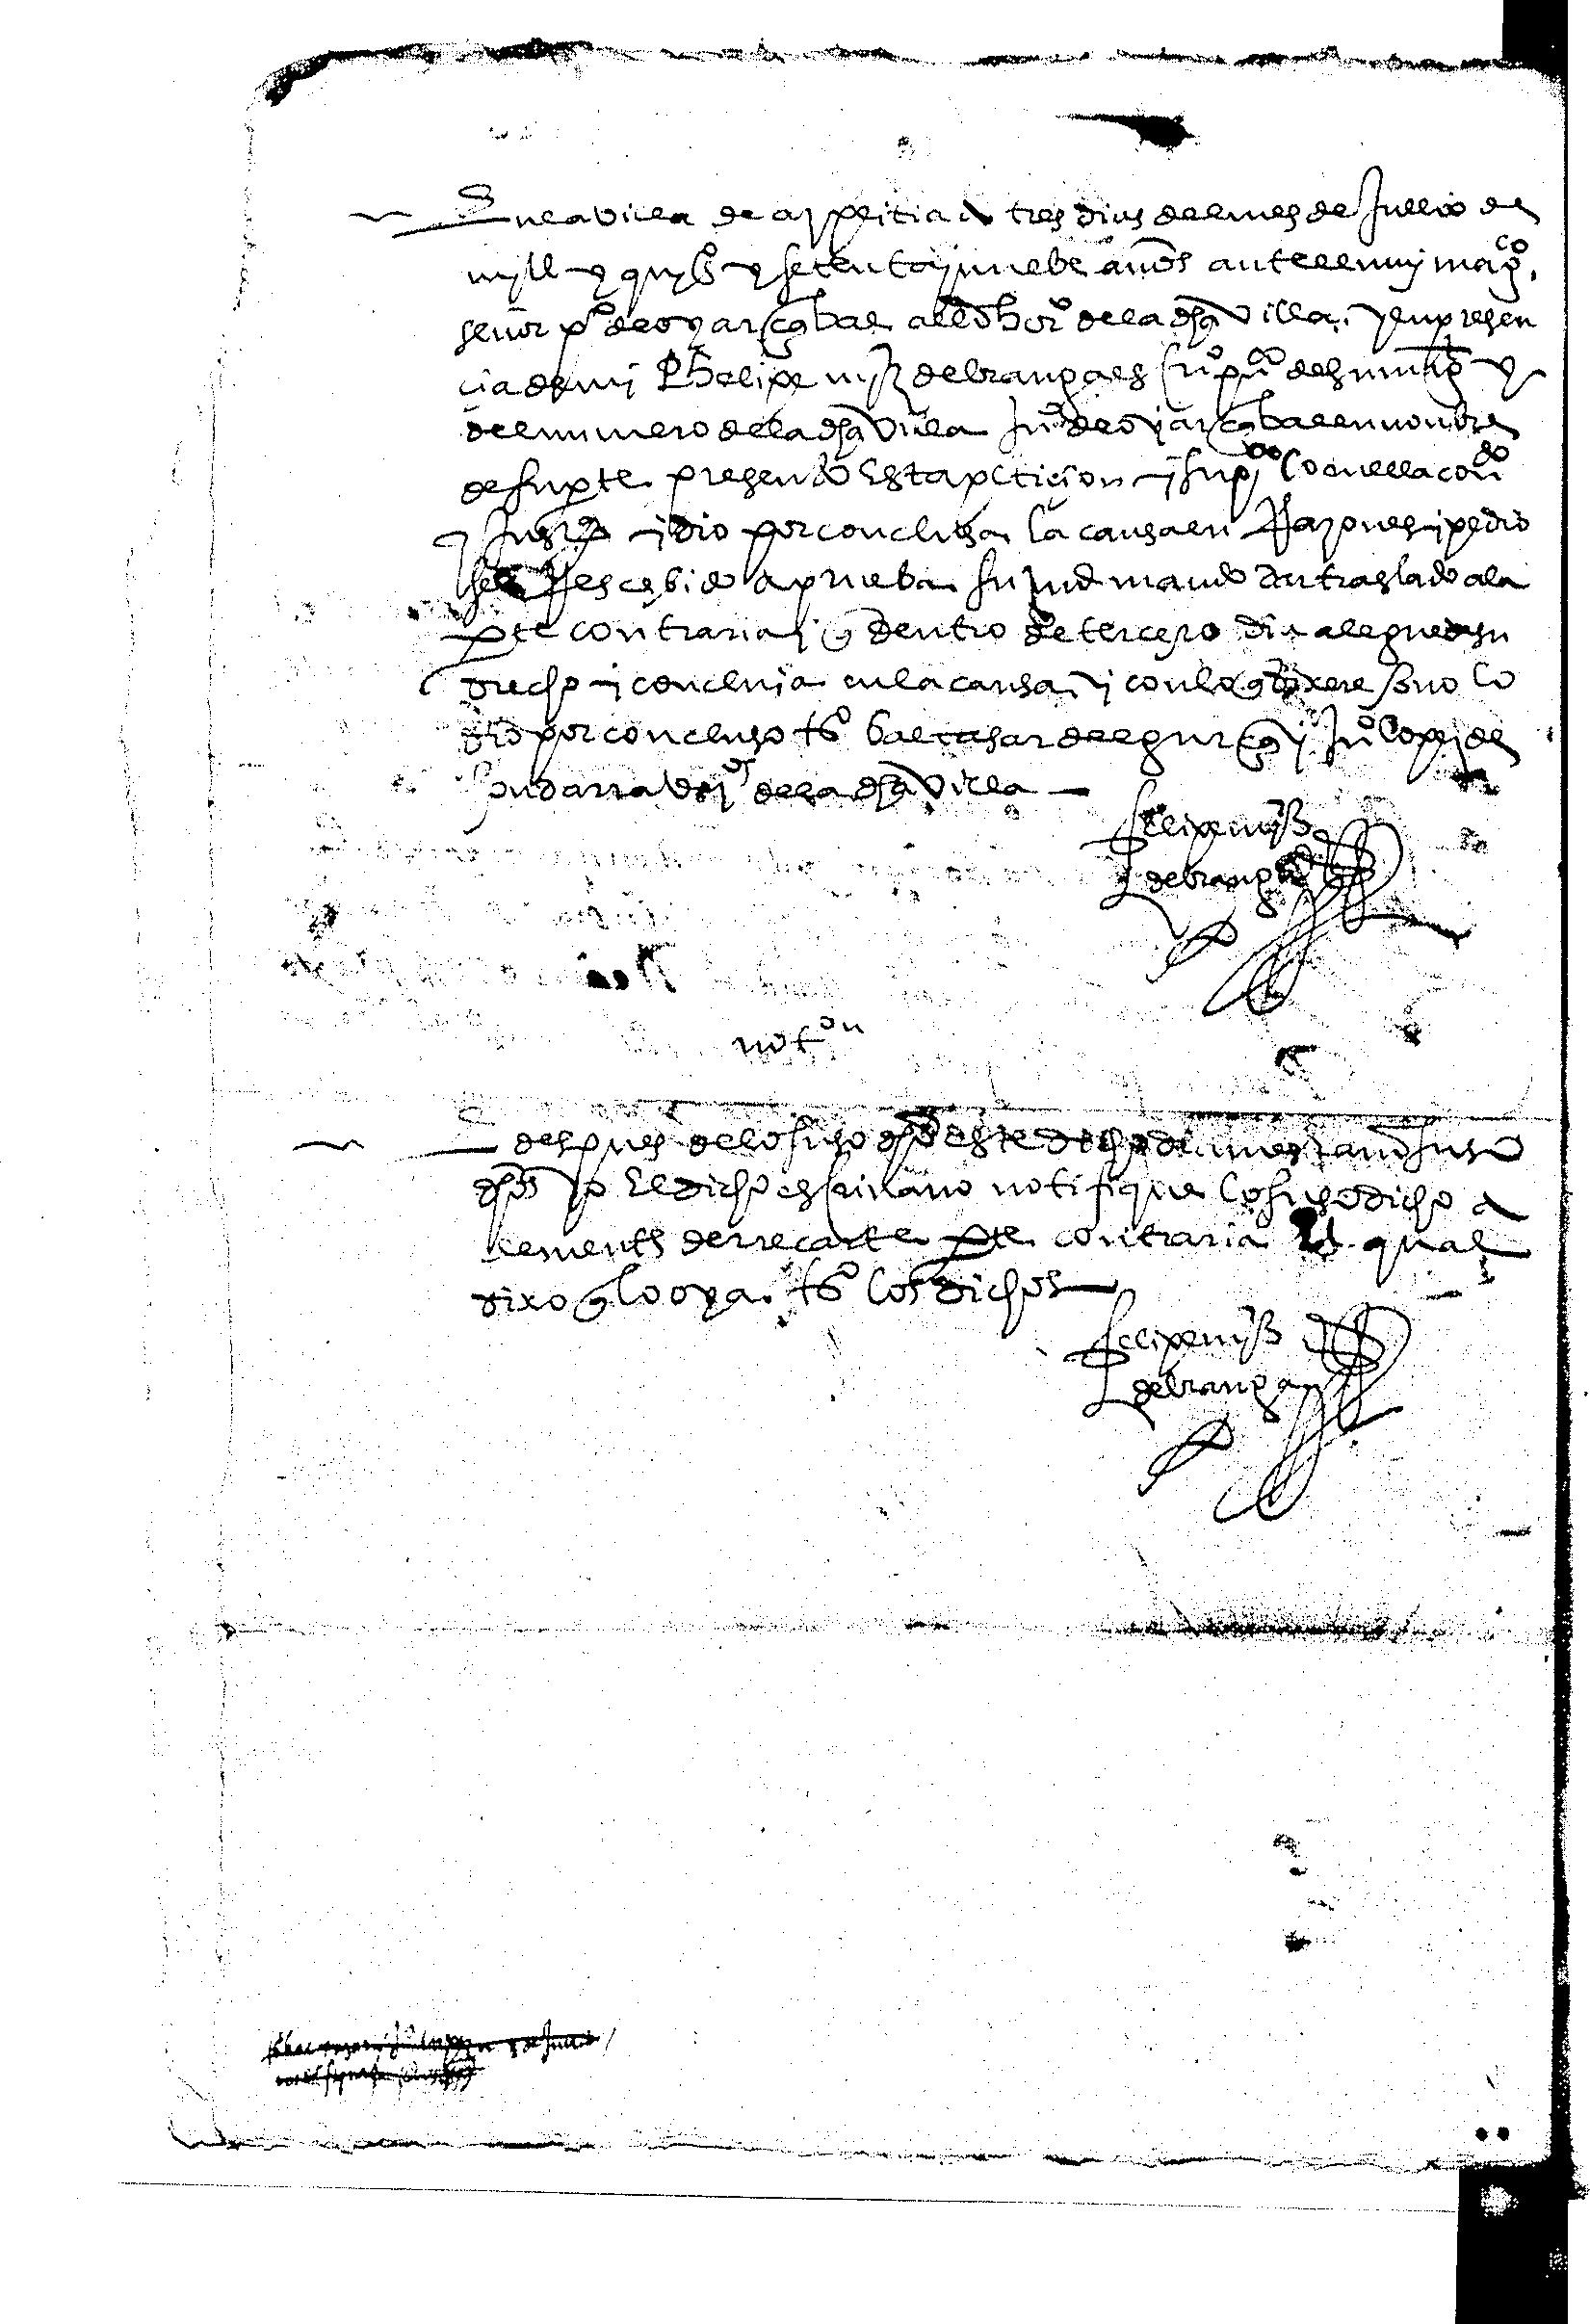 En la villa de azpeitia a tres dias del mes de Jullio de
myll y quis y setenta y nuebe años ante el muy magco
señor po de oyarçabal allde hordo de la dha villa. y en presen
cia de mi Phelipe myz de branga es no pu de su mag y
del numero de la dha villa Juo de oyarçabal en nonbre
de su pte presento Esta peticion y supco lo en ella condo
y Justa y dio por conclusa la causa en Razones y pedio
ser Rescebido a prueba su md mando dar traslado a la
pte contraria y q dentro de tercero dia alegue de su
drecho y concluia en la causa y con lo q dixere o no lo
dio por concluso tos baltasar de egurça y Juo lopez de
hondarra vos de la dha villa
felipe myz
de branga
noton
E despues de lo suso dho este dicho dia mes y año suso
dhos yo El dicho escrivano notifique lo suso dicho a
clemente de rrecarte pte contraria El qual
dixo q lo oya. tos los dichos
felipe myz
de branga